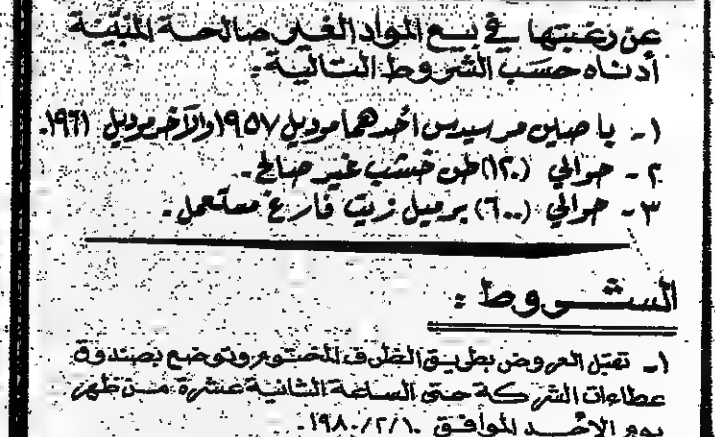 عن رغبتها في بيع المواد الغير صالحة المبينة
أدناه حسب الشروط التالية:
١- باصين مرسيدس احدهما موديل ١٩٥٧ والآخر موديل ١٩٦١.
٢- حوالي (١٢٠) طن خشب غير صالح.
٣- حوالي (٦٠٠) برميل زيت فارغ مستعمل.
الشروط:
١- تقبل العروض بطريق الظرف المختوم وتوضع بصندوق
عطاءات الشركة حتى الساعة الثانية عشرة من ظهر
يوم الاحد الموافق ١٩٨٠/٢/١٠.